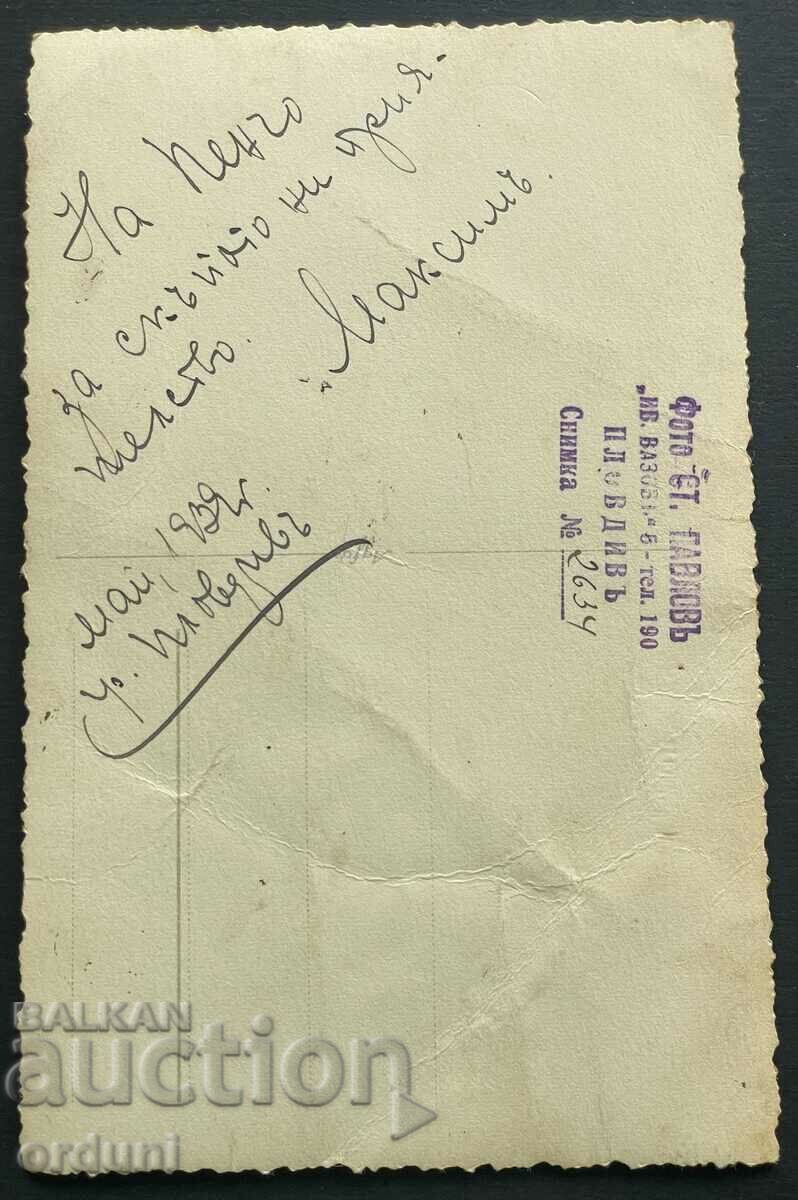 На Пенчо
за скъпото ни прия-
телство.
Максимъ.
май, 1939 г.
гр. Пловдивъ
Фото Ст. ПАВЛОВЪ
„ИВ. ВАЗОВЪ“ 6 - тел. 190
ПЛОВДИВЪ
Снимка № 2634
BALKAN
auction
orduni